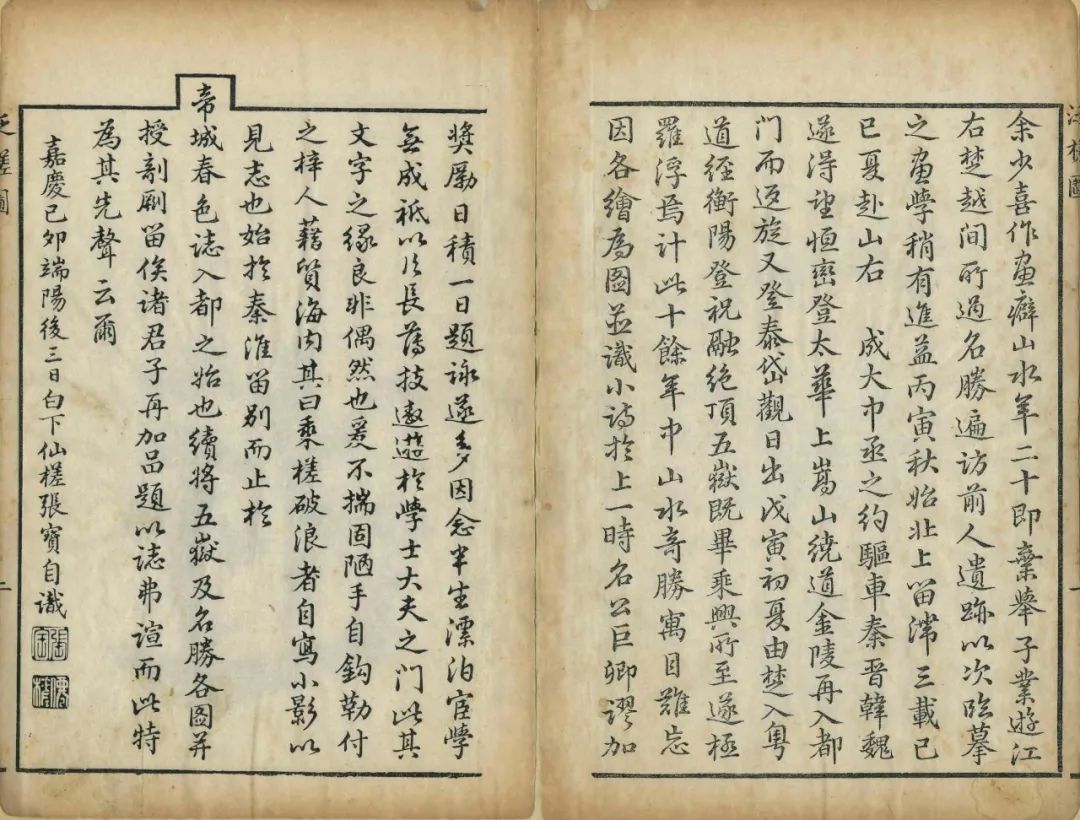 余少喜作畫癖山水年二十即棄舉子業遊江
右楚越間所過名勝遍訪前人遺跡以次臨摹
之畫學稍有進益丙寅秋始北上留滯三載己
巳夏赴山右 成大中丞之約驅車秦晉韓魏
遂得望恒巒登太華上嵩山繞道金陵再入都
門而返旋又登泰岱觀日出戊寅初夏由楚入粵
道經衡陽登祝融絕頂五嶽既畢乘興所至遂極
羅浮焉計此十餘年中山水奇勝寓目難忘
因各繪為圖並識小詩於上一時名公巨卿謬加
獎勵日積一日題詠遂多因念半生漂泊宦學
無成祗以片長薄技遨遊於學士大夫之門此其
文字之緣良非偶然也爰不揣固陋手自鈎勒付
之梓人藉質海內其曰乘槎破浪者自寫小影以
見志也始於秦淮留別而止於
帝城春色誌入都之始也續將五嶽及名勝各圖并
授剞劂留俟諸君子再加品題以誌弗諼而此特
為其先聲云爾
嘉慶己卯端陽後三日白下仙槎張寶自識
張寶
仙槎
泛槎圖
一
泛槎圖
二